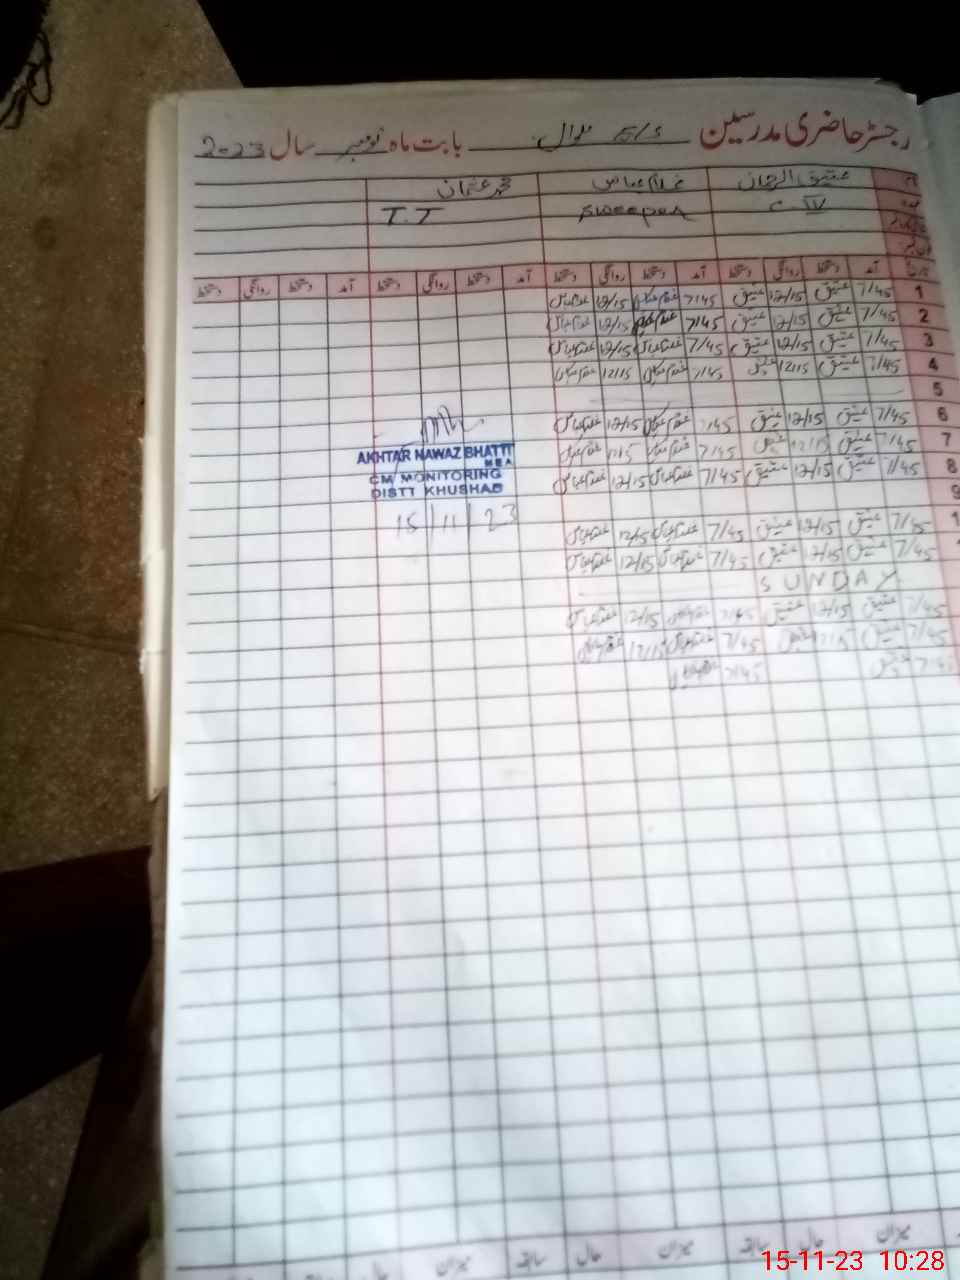 رجسٹر حاضری مدرسین E/S بابت ماہ نومبر سال 2023
عتیق الرحمان غلام عباس محمد عثمان
C IV Sweeper T.T
آمد دستخط روانگی دستخط آمد دستخط روانگی دستخط آمد دستخط روانگی دستخط آمد دستخط روانگی دستخط
1 7/45 عتیق 12/15 عتیق 7/45 غلام عباس 12/15 غلام عباس
2 7/45 عتیق 12/15 عتیق 7/45 غلام عباس 12/15 غلام عباس
3 7/45 عتیق 12/15 عتیق 7/45 غلام عباس 12/15 غلام عباس
4 7/45 عتیق 12/15 عتیق 7/45 غلام عباس 12/15 غلام عباس
5
6 7/45 عتیق 12/15 عتیق 7/45 غلام عباس 12/15 غلام عباس
7 7/45 عتیق 12/15 عتیق 7/45 غلام عباس
8 7/45 عتیق 12/15 عتیق 7/45 غلام عباس 12/15 غلام عباس
9
7/45 عتیق 12/15 عتیق 7/45 غلام عباس 12/15 غلام عباس
7/45 عتیق 12/15 عتیق 7/45 غلام عباس 12/15 غلام عباس
SUNDAY
7/45 عتیق 12/15 عتیق 7/45 غلام عباس 12/15 غلام عباس
7/45 عتیق 12/15 عتیق 7/45 غلام عباس 12/15 غلام عباس
7/45 عتیق 7/45 غلام عباس
AKHTAR NAWAZ BHATTI
MEA
CM MONITORING
DISTT KHUSHAB
15/11/23
میزان حال سابقہ میزان حال سابقہ میزان حال سابقہ
15-11-23 10:28